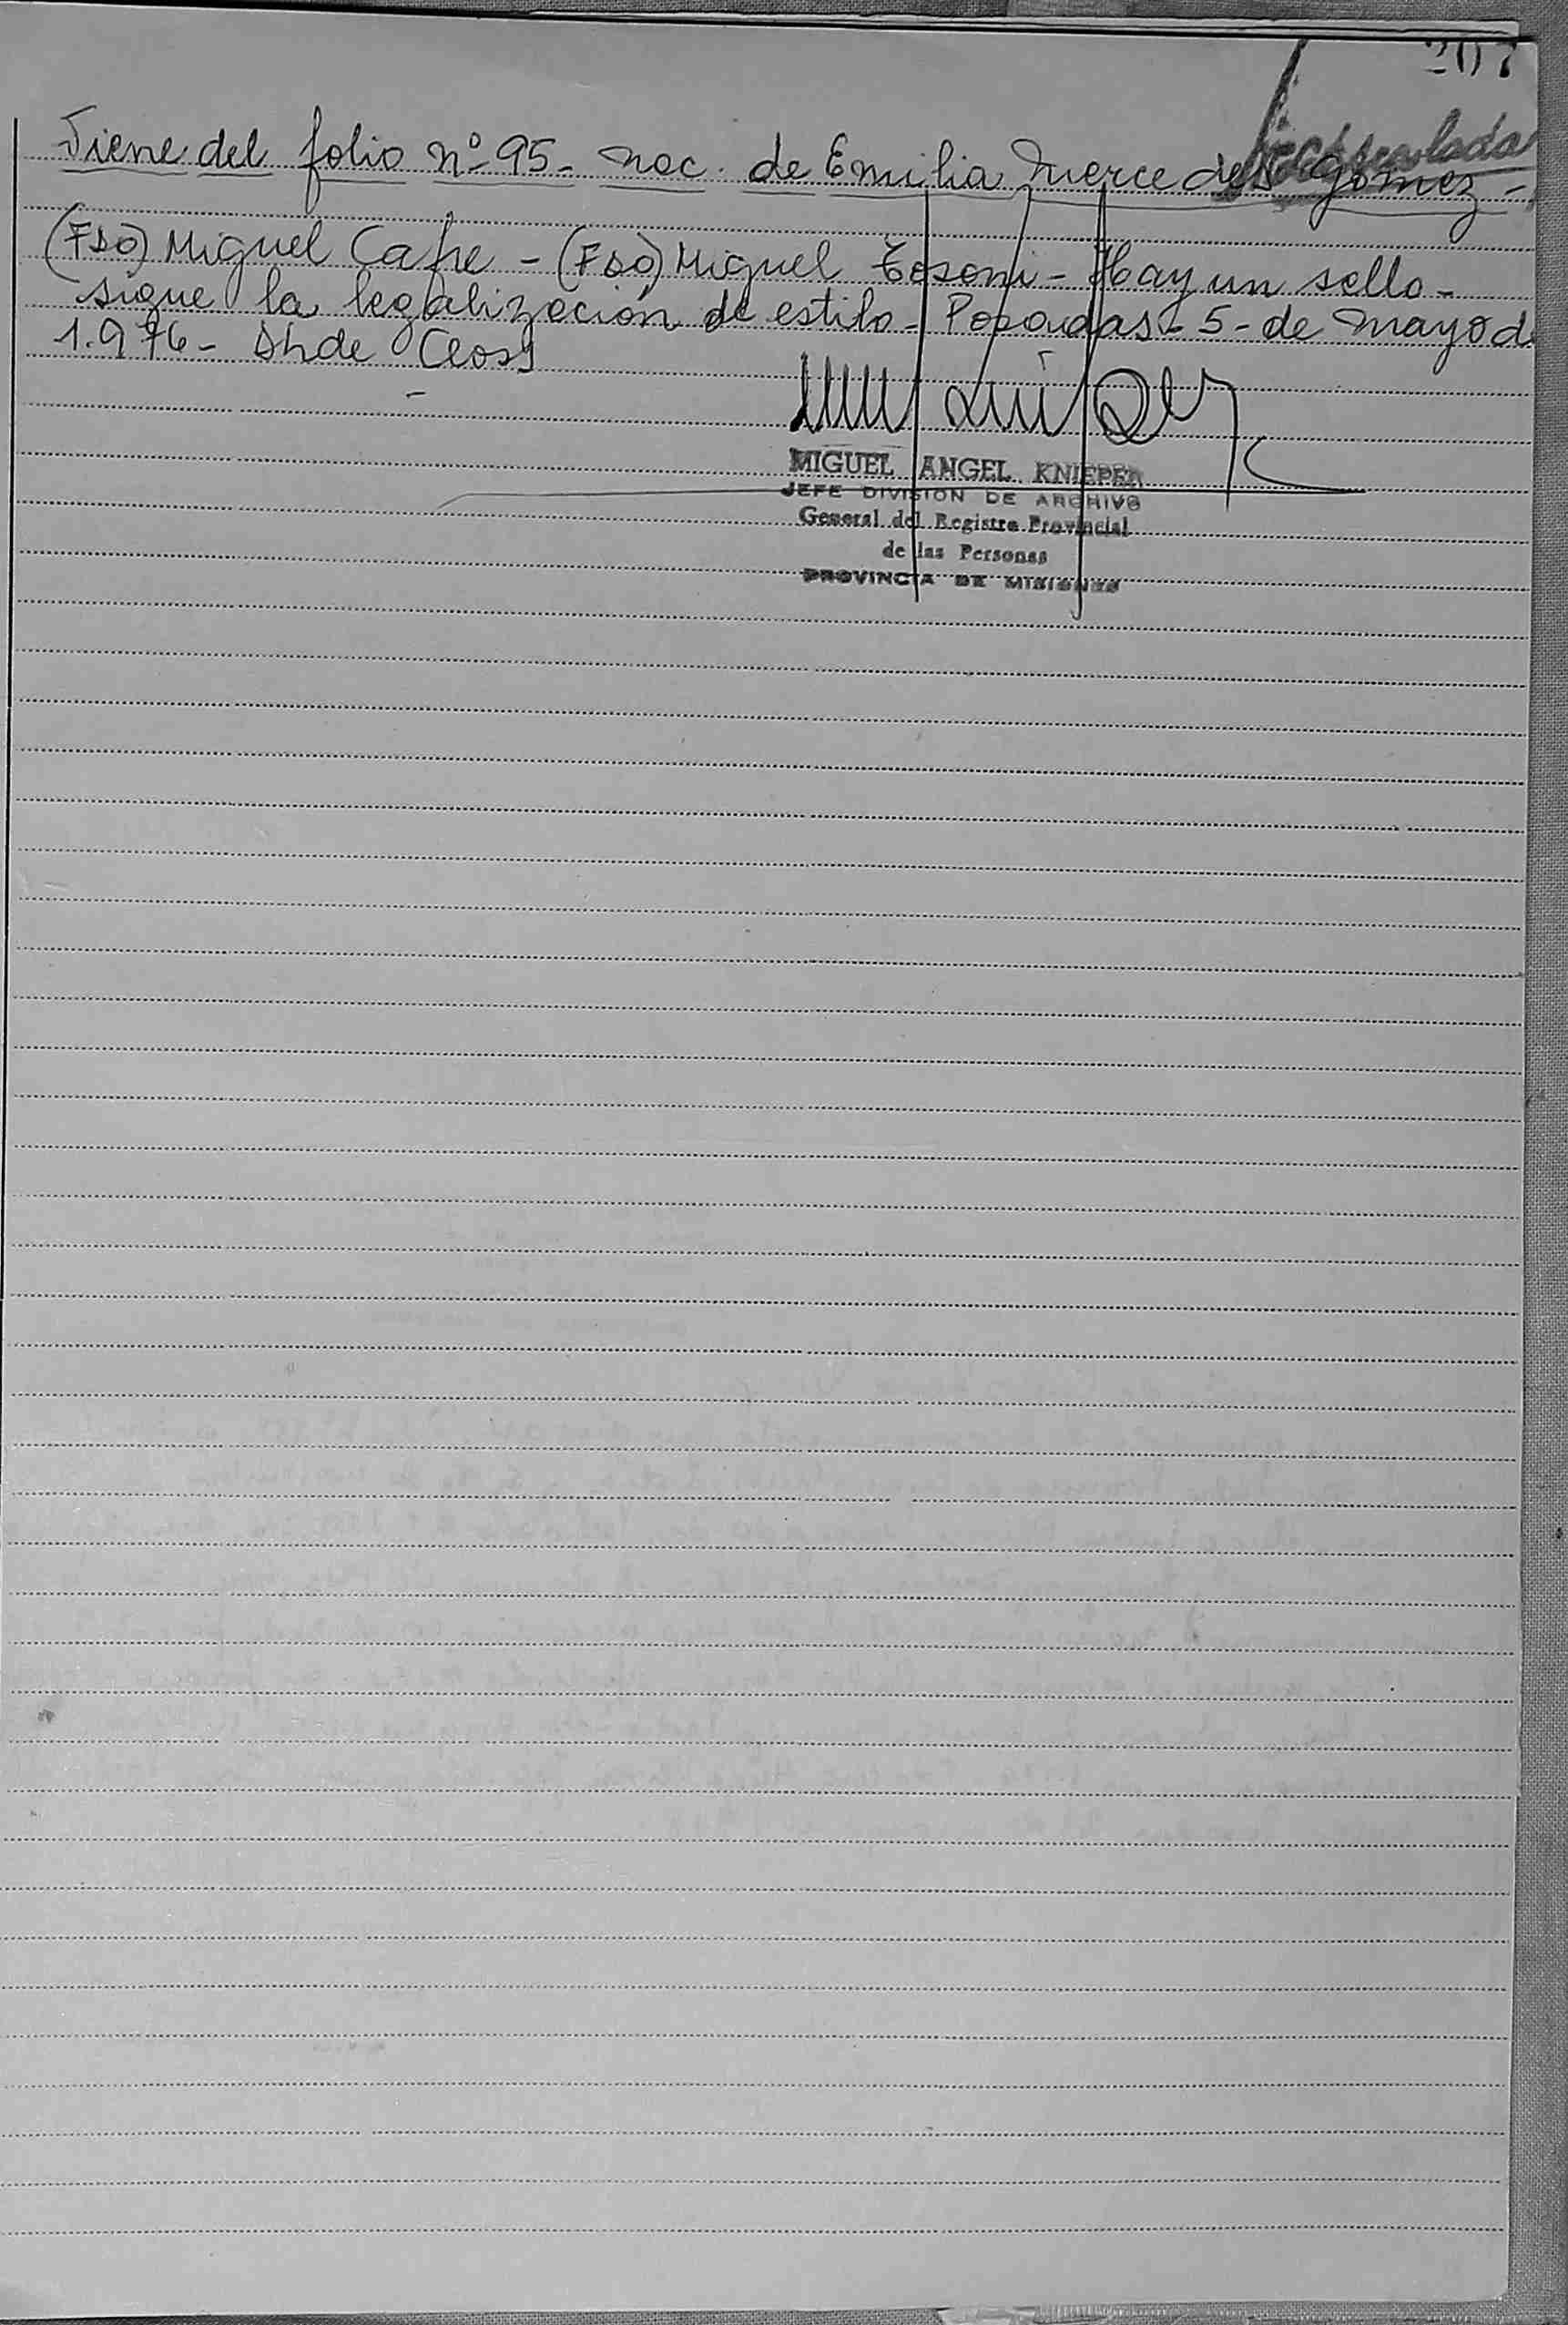 207
Viene del folio nº 95 - nac. de Emilia Mercedes Gómez -
(Fdo) Miguel Cafre - (Fdo) Miguel Tosoni - Hay un sello -
sigue la legalización de estilo - Posadas - 5 - de Mayo de
1.976 -
MIGUEL ANGEL KNIEPER
JEFE DIVISION DE ARCHIVO
General del Registro Provincial
de las Personas
PROVINCIA DE MISIONES